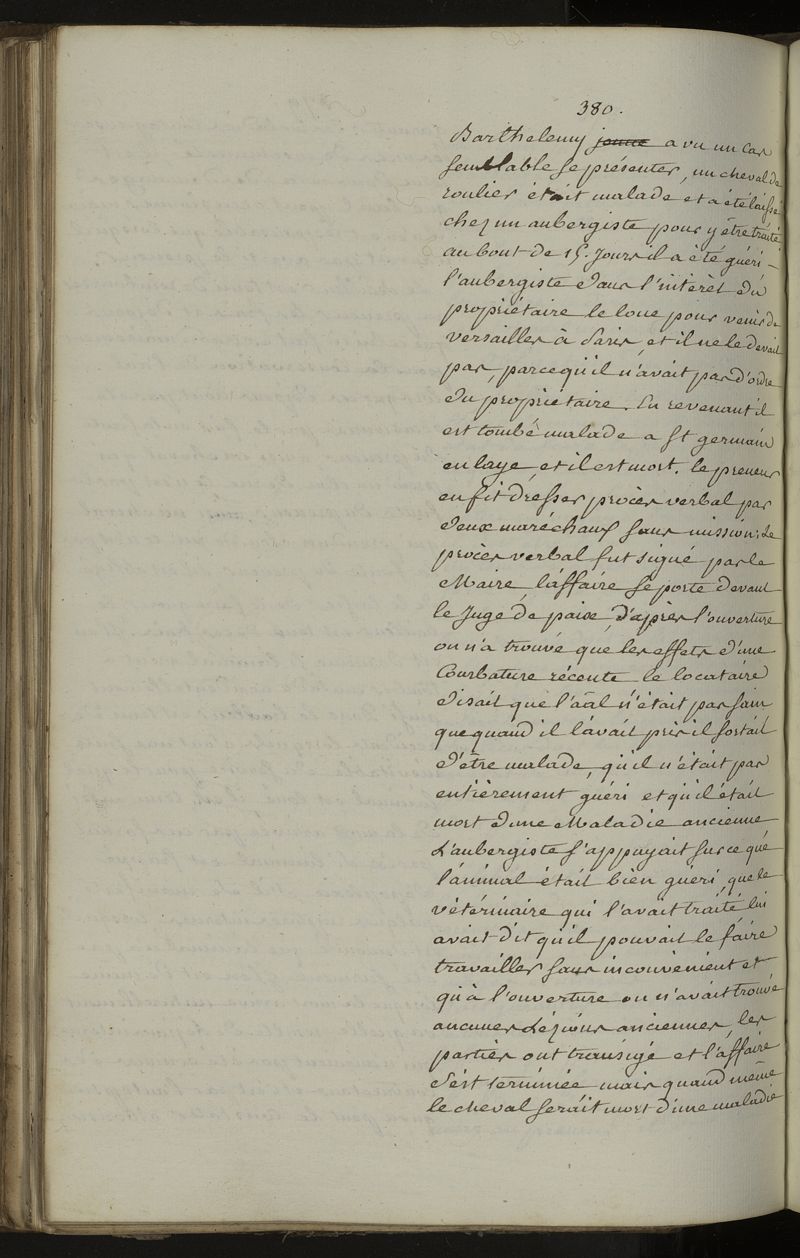 380.
Barthelemy jeune a vu un cas
semblable se présenter, un cheval de
roulier était malade et a été laissé
chez un aubergiste pour y être traité
au bout de 15. Jours il a été guéri –
l'aubergiste dans l'intérêt du
propriétaire le loue pour venir de
versailles à Paris, et il ne le devait
pas, parcequ'il n'avait pas d'ordre
du propriétaire. En revenant il
est tombé malade a St germain
en laye, et il est mort. le preneur
en fit dresser procès verbal par
deux maréchaux sans mission; le
procès verbal fut signé par le
Maire, l'affaire se porte devant
le Juge de paix, d'après l'ouverture
on n'a trouvé que les effets d'une
Courbature récente le locataire
disait que l'aâl n'était pas sain
que quand il l'avait pris il sortait
d'être malade, qu'il n'était pas
entièrement guéri et qu'il était
mort d'une Maladie ancienne
L'aubergiste s'appuyait sur ce que
l'animal était bien guéri, que le
vétérinaire qui l'avait traité lui
avait dit qu'il pouvait le faire
travailler sans inconvénient et
qu'à l'ouverture on n'avait trouvé
aucunes Lézions anciennes, les
parties ont transigé et l'affaire
s'est terminée mais quand même
le cheval serait mort d'une maladie